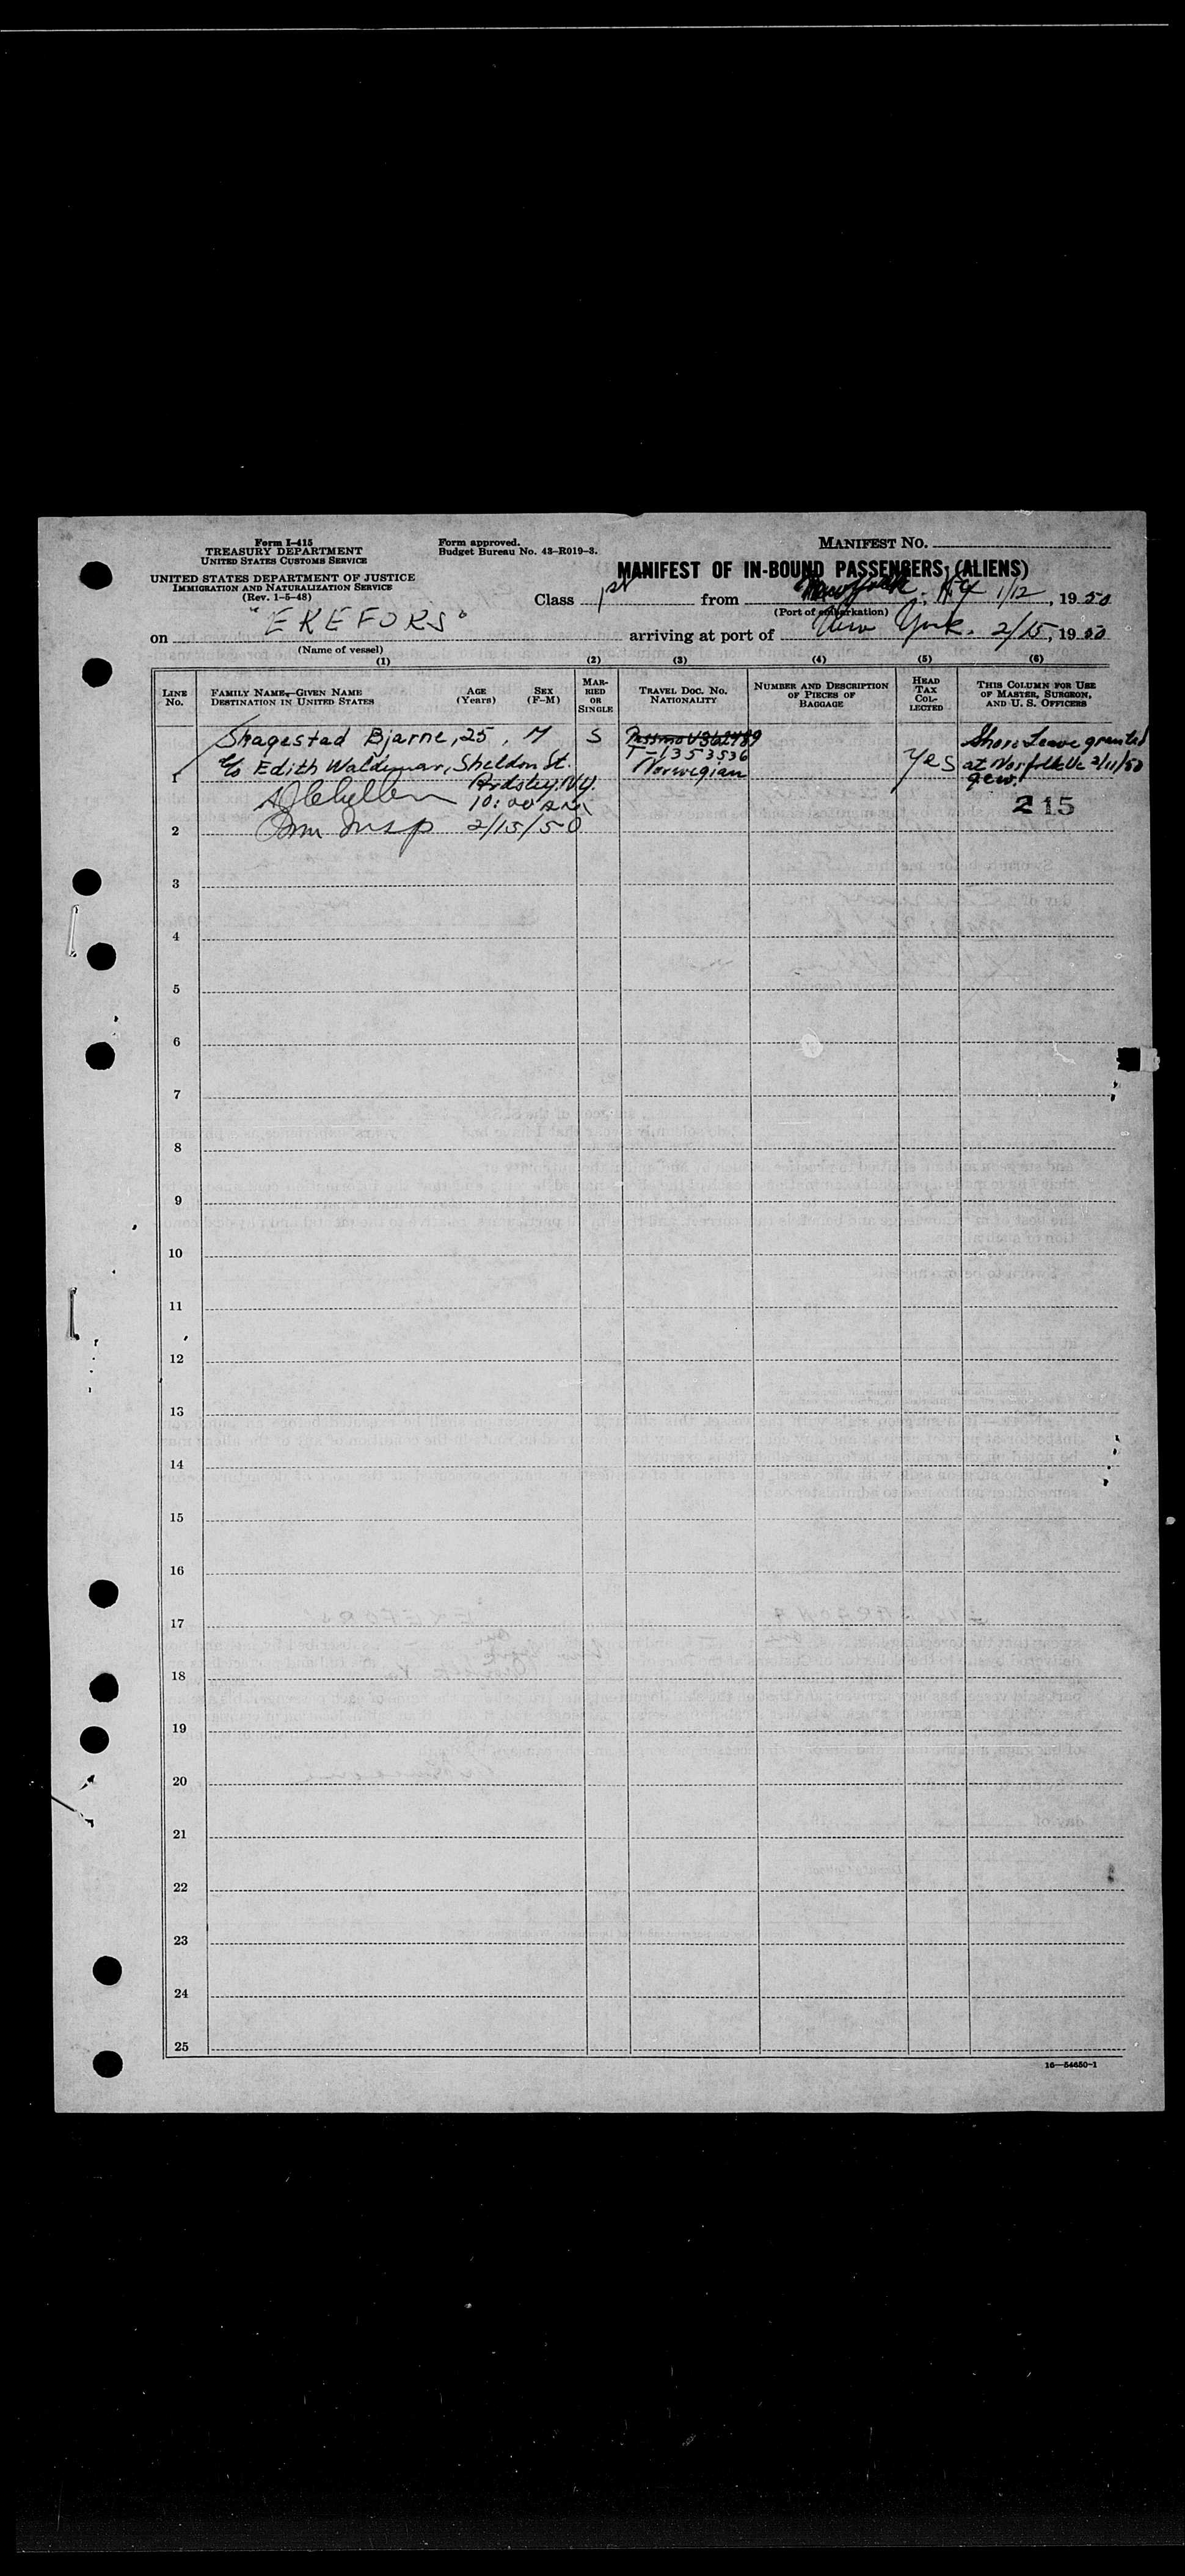 Form I-415
TREASURY DEPARTMENT
UNITED STATES CUSTOMS SERVICE
UNITED STATES DEPARTMENT OF JUSTICE
IMMIGRATION AND NATURALIZATION SERVICE
(Rev. 1-5-48)
Form approved.
Budget Bureau No. 43-R019-3.
MANIFEST NO.
MANIFEST OF IN-BOUND PASSENGERS (ALIENS)
Class 1st from 1/12, 1950
(Port of embarkation)
on "EKEFORS" arriving at port of New York. 2/15, 1950
(Name of vessel)
(1) (2) (3) (4) (5) (6)
LINE NO.
FAMILY NAME—GIVEN NAME
DESTINATION IN UNITED STATES
AGE (Years)
SEX (F-M)
MARRIED OR SINGLE
TRAVEL DOC. NO. NATIONALITY
NUMBER AND DESCRIPTION OF PIECES OF BAGGAGE
HEAD TAX COLLECTED
THIS COLUMN FOR USE OF MASTER, SURGEON, AND U. S. OFFICERS
Skagestad Bjarne, 25, M S
T-1353536
Norwegian
c/o Edith Waldemar, Sheldon St.
Ardsley. N.Y.
Yes
Shore Leave granted
at Norfolk Va 2/11/50
1
10:00 AM
215
2 Imm Insp 2/15/50
3
4
5
6
7
8
9
10
11
12
13
14
15
16
17
18
19
20
21
22
23
24
25
16—54650-1